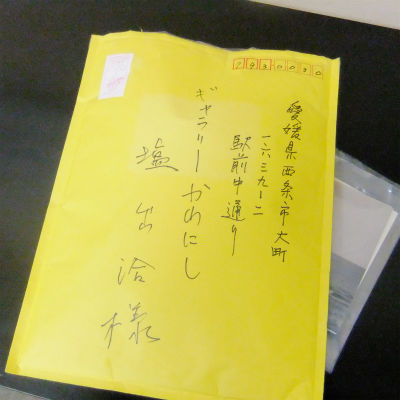 7930030
愛媛県西条市大町
一六三九ー二
駅前中通り
ギャラリーかわにし
塩出洽様